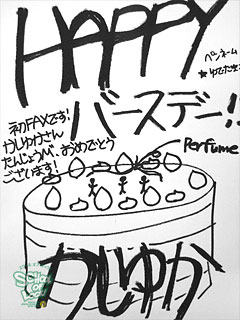 HAPPY
バースデー!!
ペンネーム
初FAXです!
かしゆかさん
たんじょうび、おめでとう
ございます!
Perfume
かしゆか
SCHOOL OF LOCK!